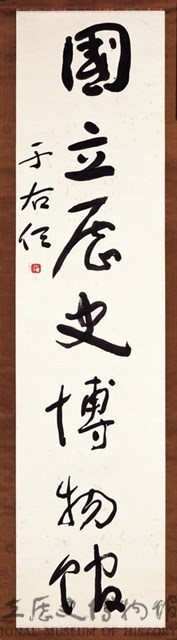 國立歷史博物館
于右任
立歷史博物館
IONAL MUSEUM OF HISTORY